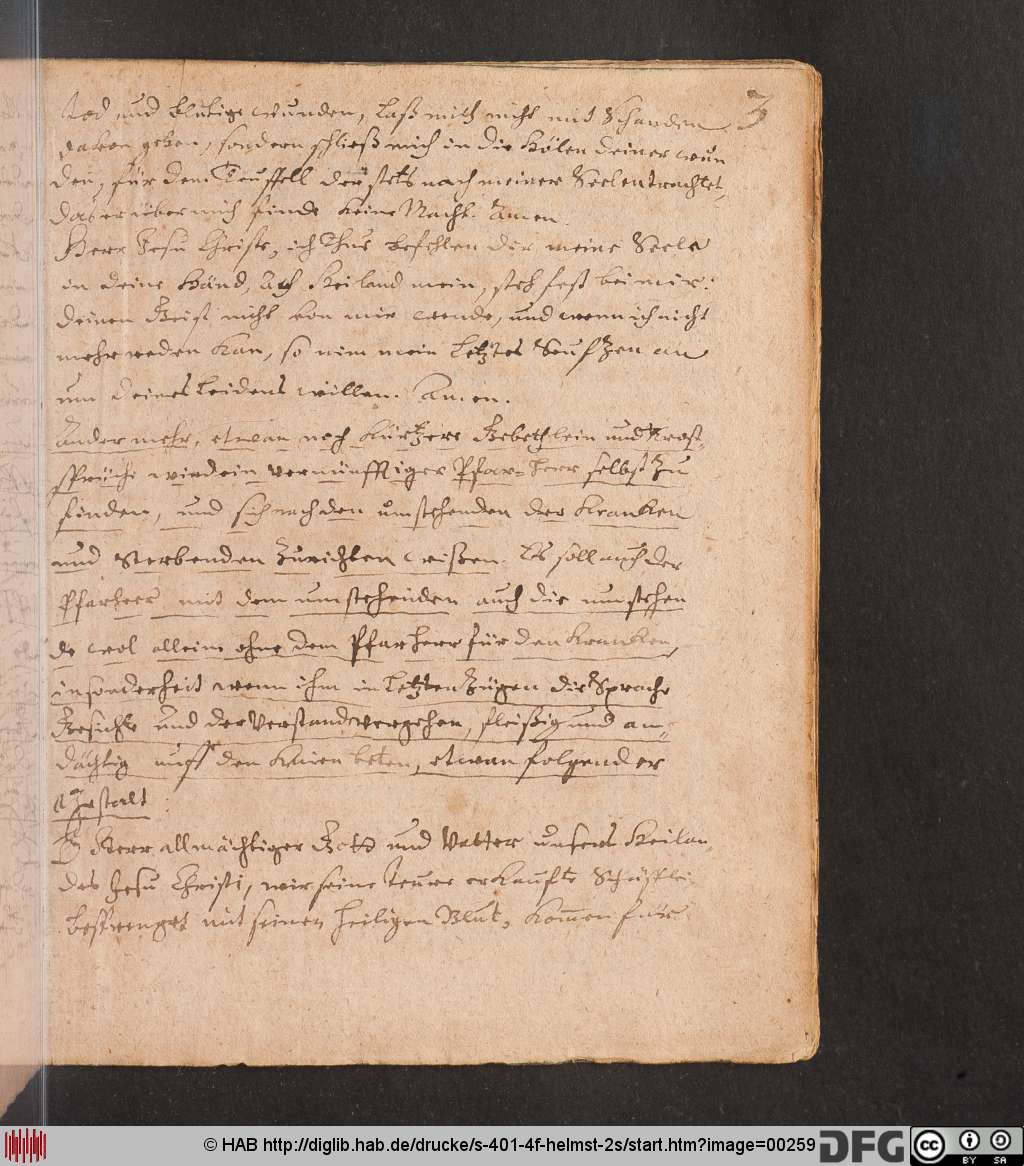 3
Tod und blutige wunden, laß mich nicht mit Schanden
davon gehen, sondern schließ mich in die Hölen deiner wun
den, für dem Teuffell der stets nach meiner Seelen trachtet,
das er über mich finde keine Macht. Amen.
Herr Jesu Christe, ich Thue befehlen dir meine Seele
in deine Händ, Ach Heiland mein, steh fest bei mir:
deinen Geist nicht von mir wende, und wenn ich nicht
mehr reden kan, so nim mein letztes Seufzen an
um deines leidens willen. Amen.
Ander mehr, etwan noch kürtzere Gebethlein und Trost
sprüche wird ein vernünfftiger Pfar-herr selbst zu
finden, und sich nach den umstehenden der Kranken
und Sterbenden zurichten wißen. Es soll auch der
Pfarherr mit dem umstehenden auch die umstehen
de wol allein ohne dem Pfarherr für den Kranken,
insonderheit wenn ihm in letzten Zügen die Sprache
Gesichte und der Verstand vergehen, fleißig und an=
dächtig auff den Knien beten, etwan folgender
Gestalt:
O Herr allmächtiger Gott und Vatter unsers Heilan
des Jesu Christi, wir seine teure erkaufte Schäfflei
besprenget mit seinen heiligen Blut, kommen für
© HAB http://diglib.hab.de/drucke/s-401-4f-helmst-2s/start.htm?image=00259
DFG
cc BY SA